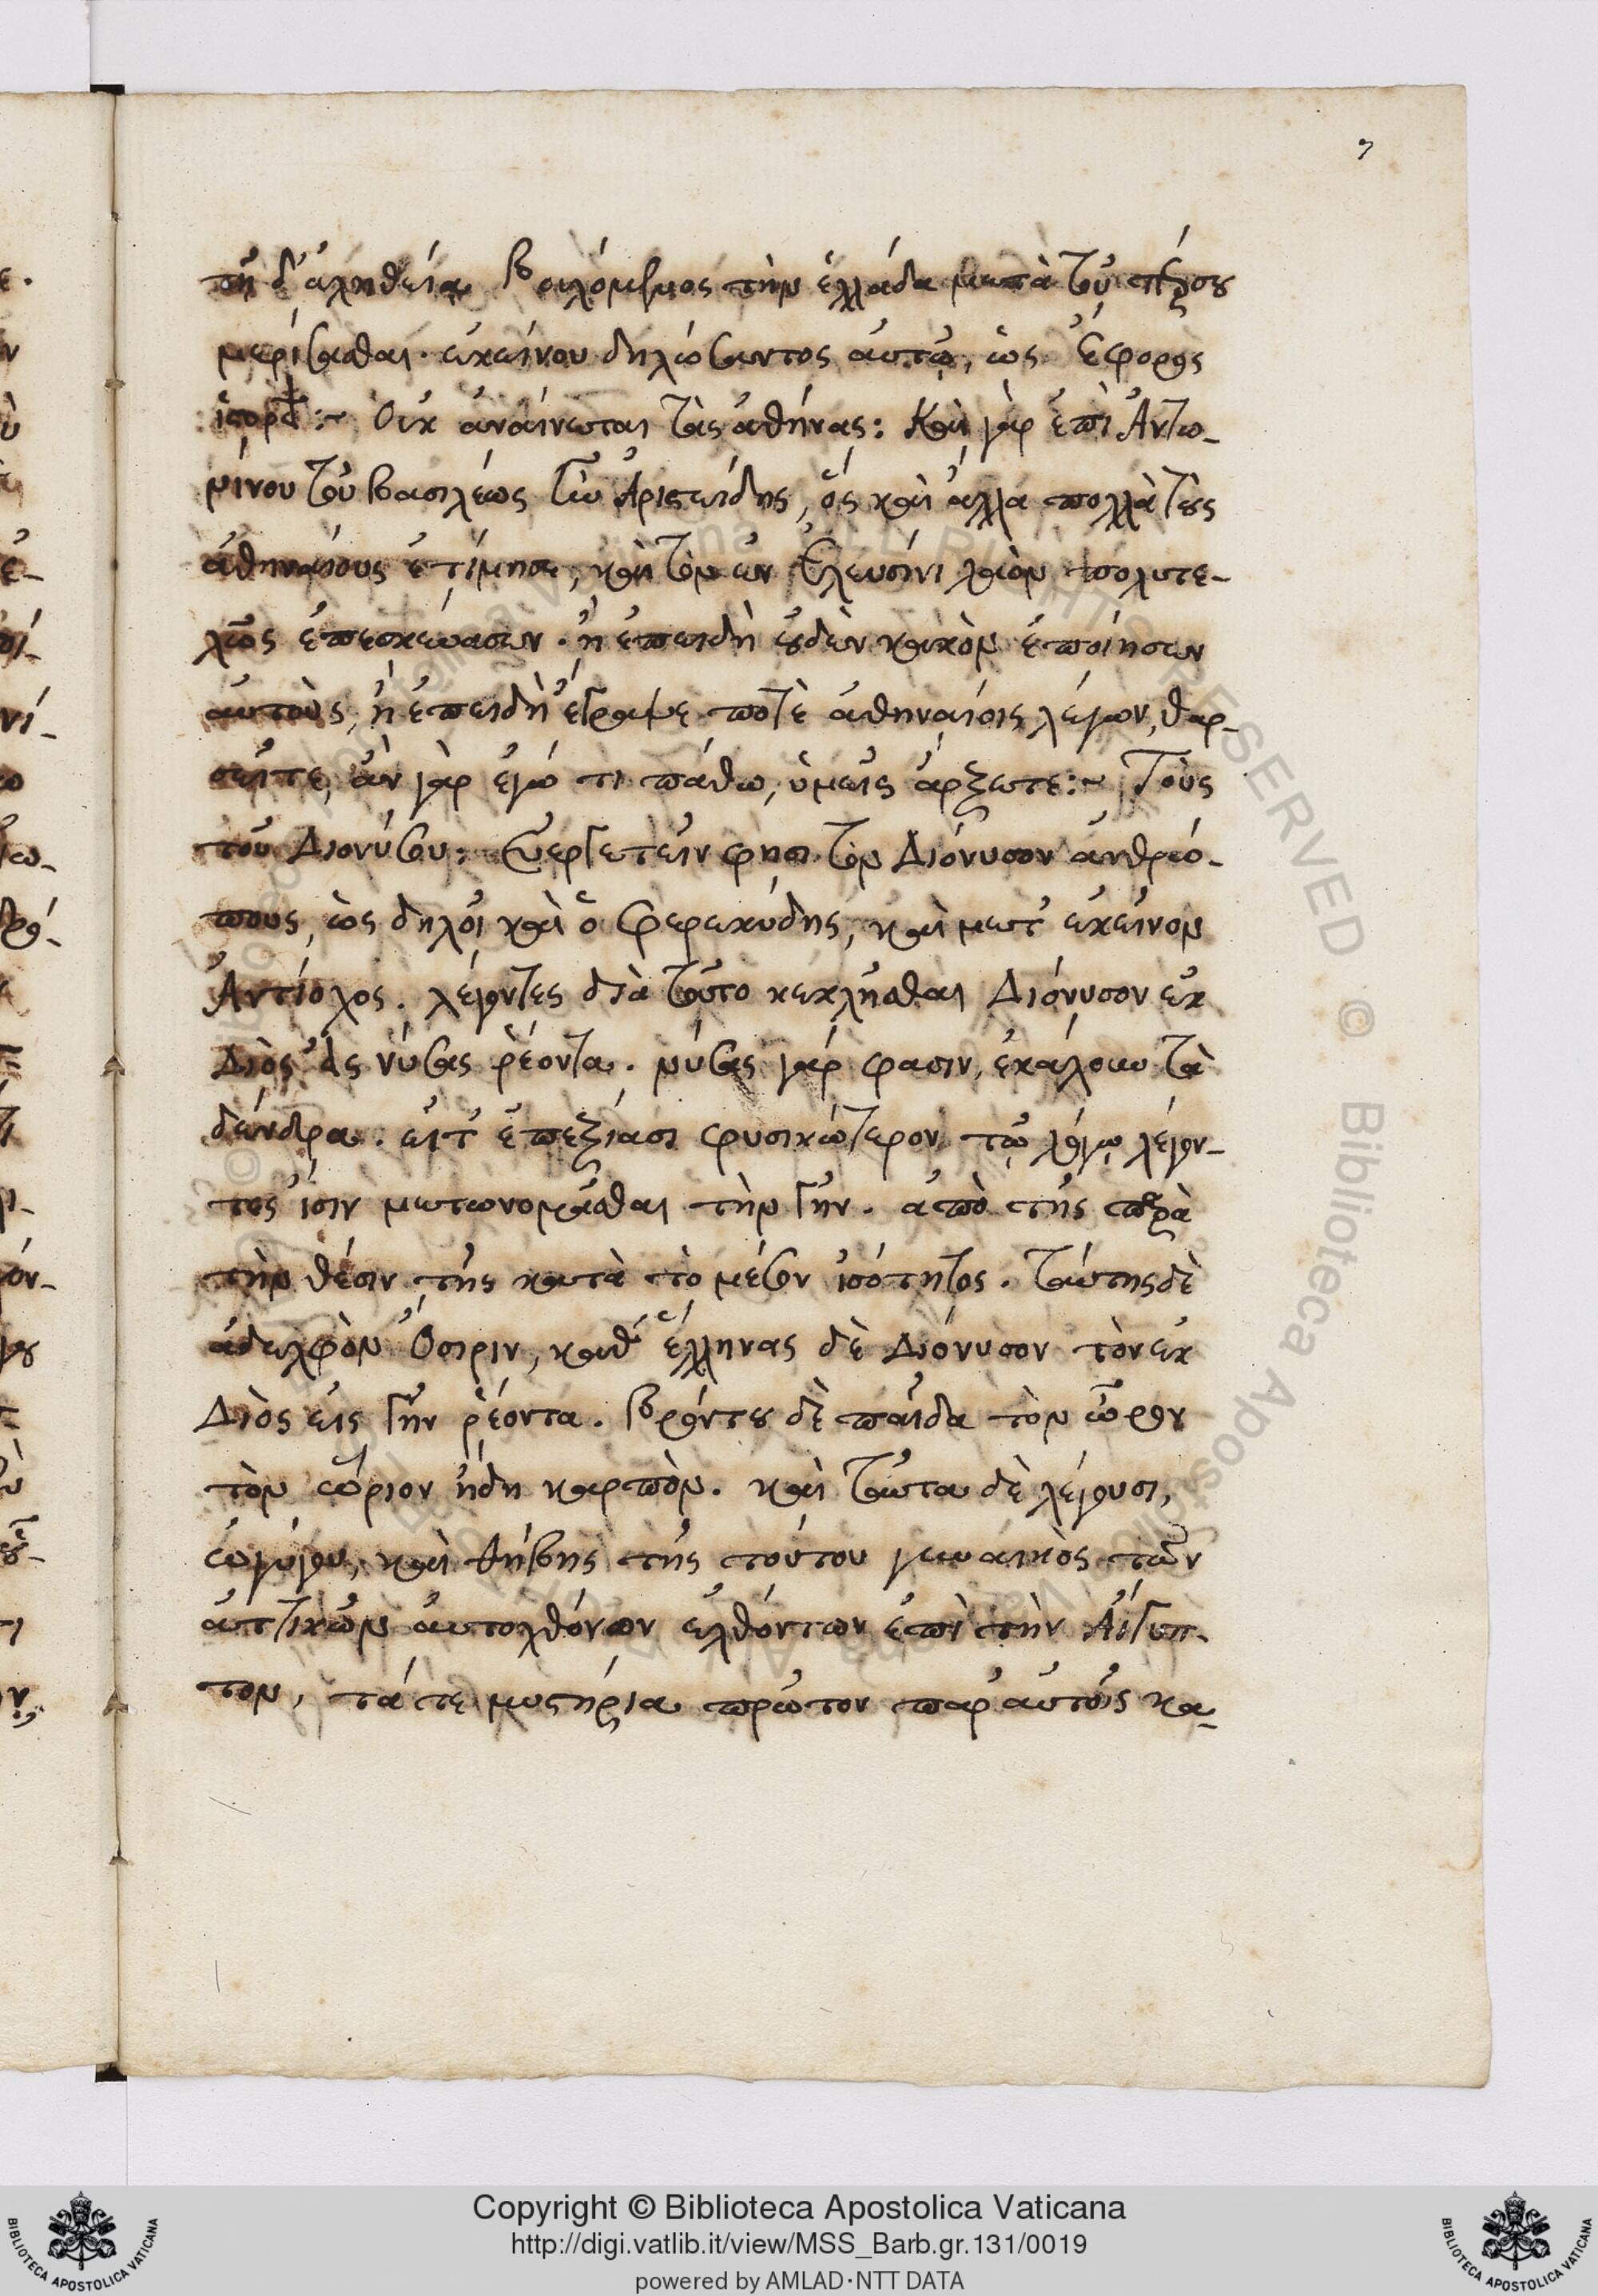 7
τῇ δ' ἀληθείᾳ βουλόμενος τὴν ἑλλάδα μετὰ τοῦ πέρσου
μερίσασθαι. ἐκείνου δηλώσαντος αὐτῷ, ὡς ἔφορος
ἱστορεῖ :~ Οὐκ ἀναίνεται τὰς ἀθήνας: Καὶ γὰρ ἐπὶ Ἀντω-
νίνου τοῦ βασιλέως ἦν Ἀριστείδης, ὅς καὶ ἄλλα πολλὰ τοὺς
ἀθηναίους ἐτίμησε, καὶ τὸν ἐν Ἐλευσίνι λεὼν πολυτε-
λῶς ἐπεσκεύασεν. ἢ ἐπειδὴ οὐδὲν κακὸν ἐποίησεν
αὐτοὺς, ἢ ἐπειδὴ ἔγραψε ποτὲ ἀθηναίοις λέγων, θαρ-
σεῖτε, ἂν γὰρ ἐγώ τι πάθω, ὑμεῖς ἄρξετε :~ Τοὺς
τοῦ Διονύσου: Εὐεργετεῖν φησι τὸν Διόνυσον ἀνθρώ-
πους, ὡς δηλοῖ καὶ ὁ Φερεκύδης, καὶ μετ' ἐκεῖνον
Ἀντίοχος. λέγοντες διὰ τοῦτο κεκλῆσθαι Διόνυσον ἐκ
Διὸς ἐς νύσας ῥέοντα. νύσας γάρ φασιν, ἐκάλουν τὰ
δένδρα. εἶτ' ἐπεξίασι φυσικώτερον τῷ λόγῳ λέγον-
τες ἶσιν μετωνομάσθαι τὴν γῆν. ἀπὸ τῆς παρὰ
τὴν θέσιν τῆς κατὰ τὸ μέσον ἰσότητος. ταύτης δὲ
ἀδελφὸν Ὄσιριν, καθ' ἕλληνας δὲ Διόνυσον τὸν ἐκ
Διὸς εἰς γῆν ῥέοντα. βρόντου δὲ παῖδα τὸν ὦρον
τὸν ὥριον ἤδη καρπὸν. καὶ ταῦτα δὲ λέγουσι,
ὠγύγου, καὶ θήβης τῆς τούτου γυναικὸς τῶν
ἀττικῶν αὐτοχθόνων ἐλθόντων ἐπὶ τὴν Αἴγυπ-
τον, τά τε μυστήρια πρῶτον παρ' αὐτοῖς κα-
Copyright © Biblioteca Apostolica Vaticana
http://digi.vatlib.it/view/MSS_Barb.gr.131/0019
powered by AMLAD·NTT DATA